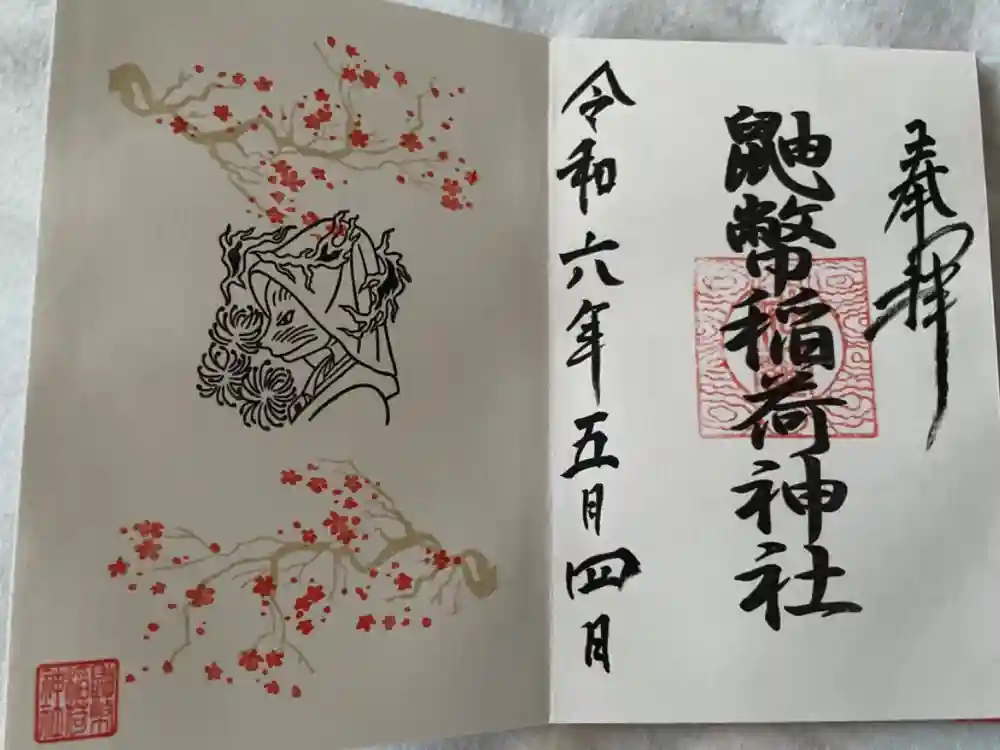 奉拝
鼬幣稲荷神社
令和六年五月四月
鼬幣
稲荷
神社